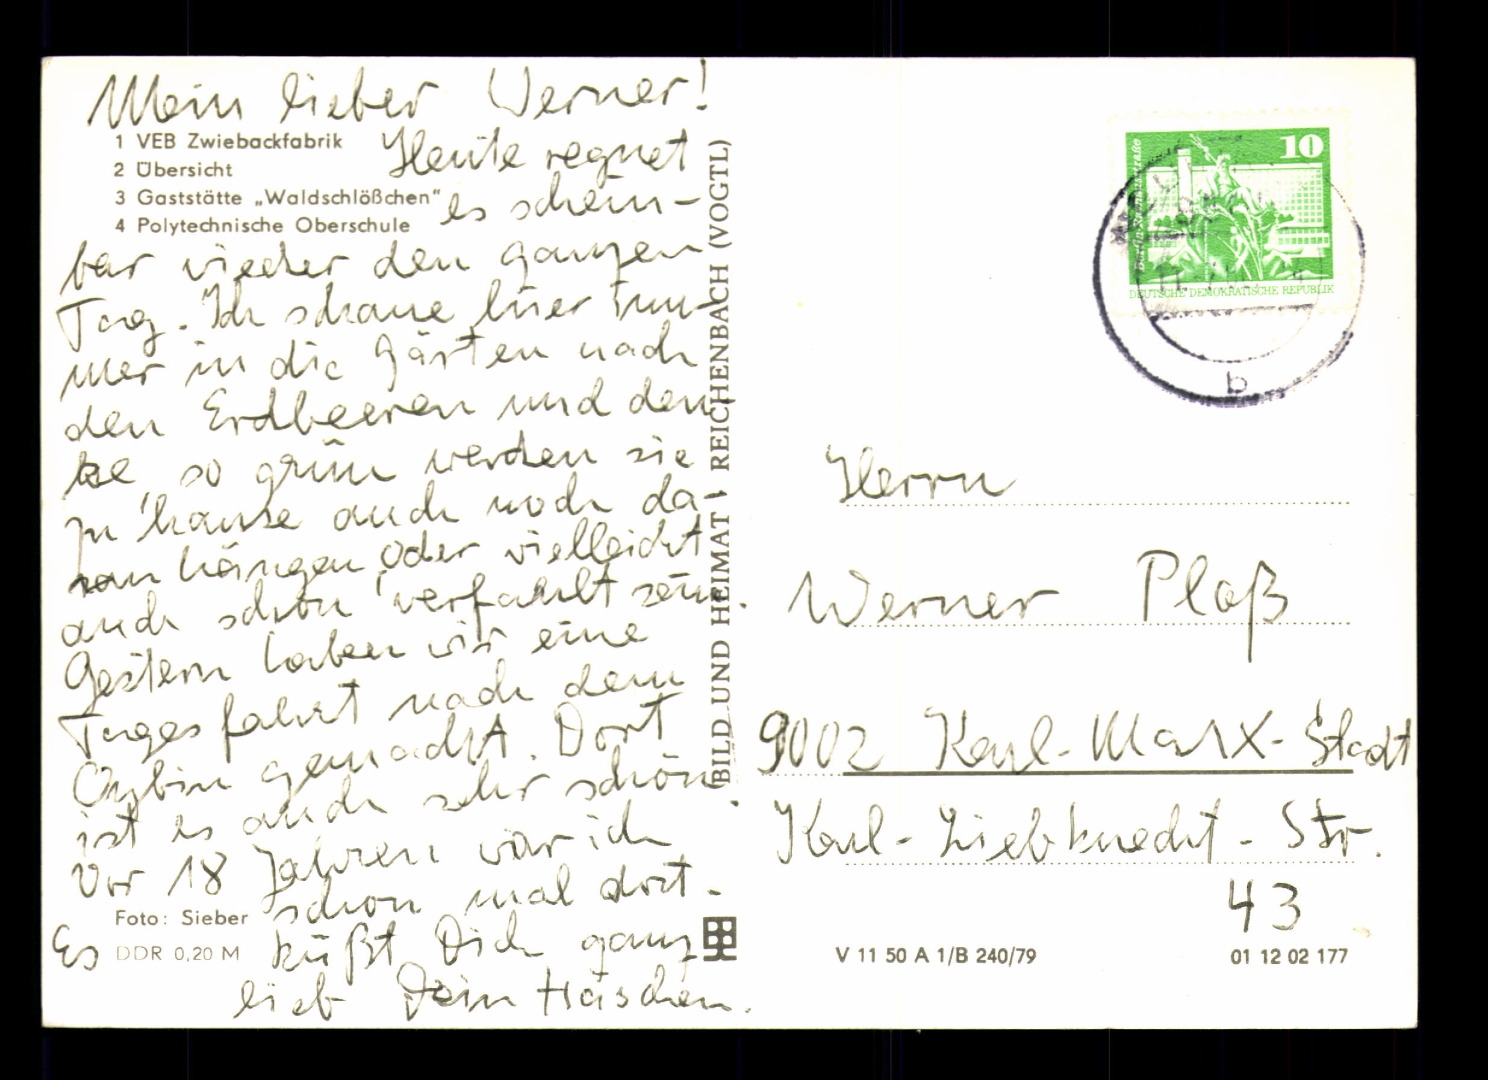 Mein lieber Werner!
1 VEB Zwiebackfabrik
2 Übersicht
3 Gaststätte „Waldschlößchen“
4 Polytechnische Oberschule
Heute regnet
es schein-
bar wieder den ganzen
Tag. Ich schaue hier im-
mer in die Gärten nach
den Erdbeeren und den-
ke, so grün werden sie
zu hause auch noch da-
ran hängen oder vielleicht
auch schon verfault sein.
Gestern haben wir eine
Tagesfahrt nach dem
Oybin gemacht. Dort
ist es auch sehr schön.
Vor 18 Jahren war ich
schon mal dort.
Foto: Sieber
DDR 0,20 M
Es küßt Dich ganz
lieb Dein Häschen.
BILD UND HEIMAT · REICHENBACH (VOGTL)
10
DEUTSCHE DEMOKRATISCHE REPUBLIK
b
Herrn
Werner Plaß
9002 Karl-Marx-Stadt
Karl-Liebknecht-Str.
43
V 11 50 A 1/B 240/79
01 12 02 177